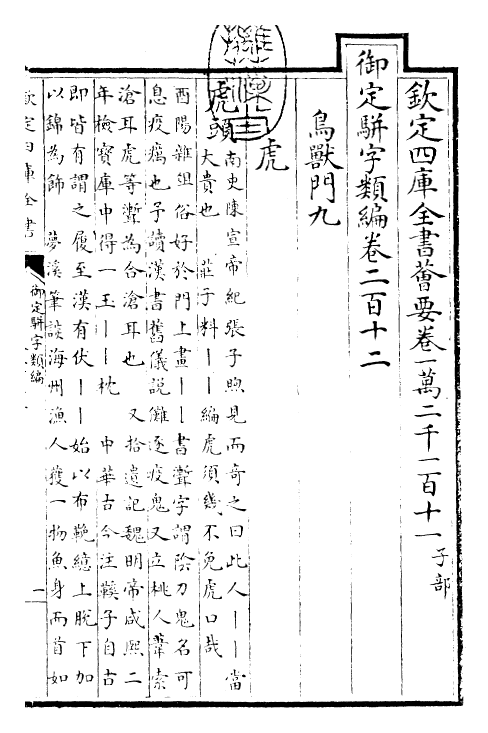 欽定四庫全書薈要卷一萬二千一百十一 子部
御定駢字類編卷二百十二
鳥獸門九
虎
虎頭
南史陳宣帝紀張子煦見而奇之曰此人丨丨當
大貴也 莊子料丨丨編虎須幾不免虎口哉
酉陽雜俎俗好於門上畫丨丨書聻字謂陰刀鬼名可
息疫癘也予讀漢書舊儀說儺逐疫鬼又立桃人葦索
滄耳虎等聻為合滄耳也 又拾遺記魏明帝咸熙二
年檢寶庫中得一玉丨丨枕 中華古今注鞵子自古
即皆有謂之履至漢有伏丨丨始以布鞔繶上脫下加
以錦為飾 夢溪筆談海州漁人獲一物魚身而首如
欽定四庫全書
御定駢字類編
一